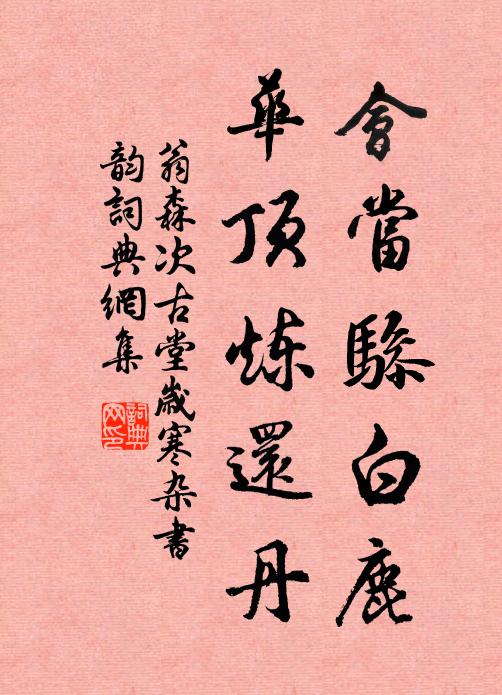 會當驂白鹿
華頂煉還丹
翁森次古堂歲寒杂書
韵詞典網集
詞典
网印